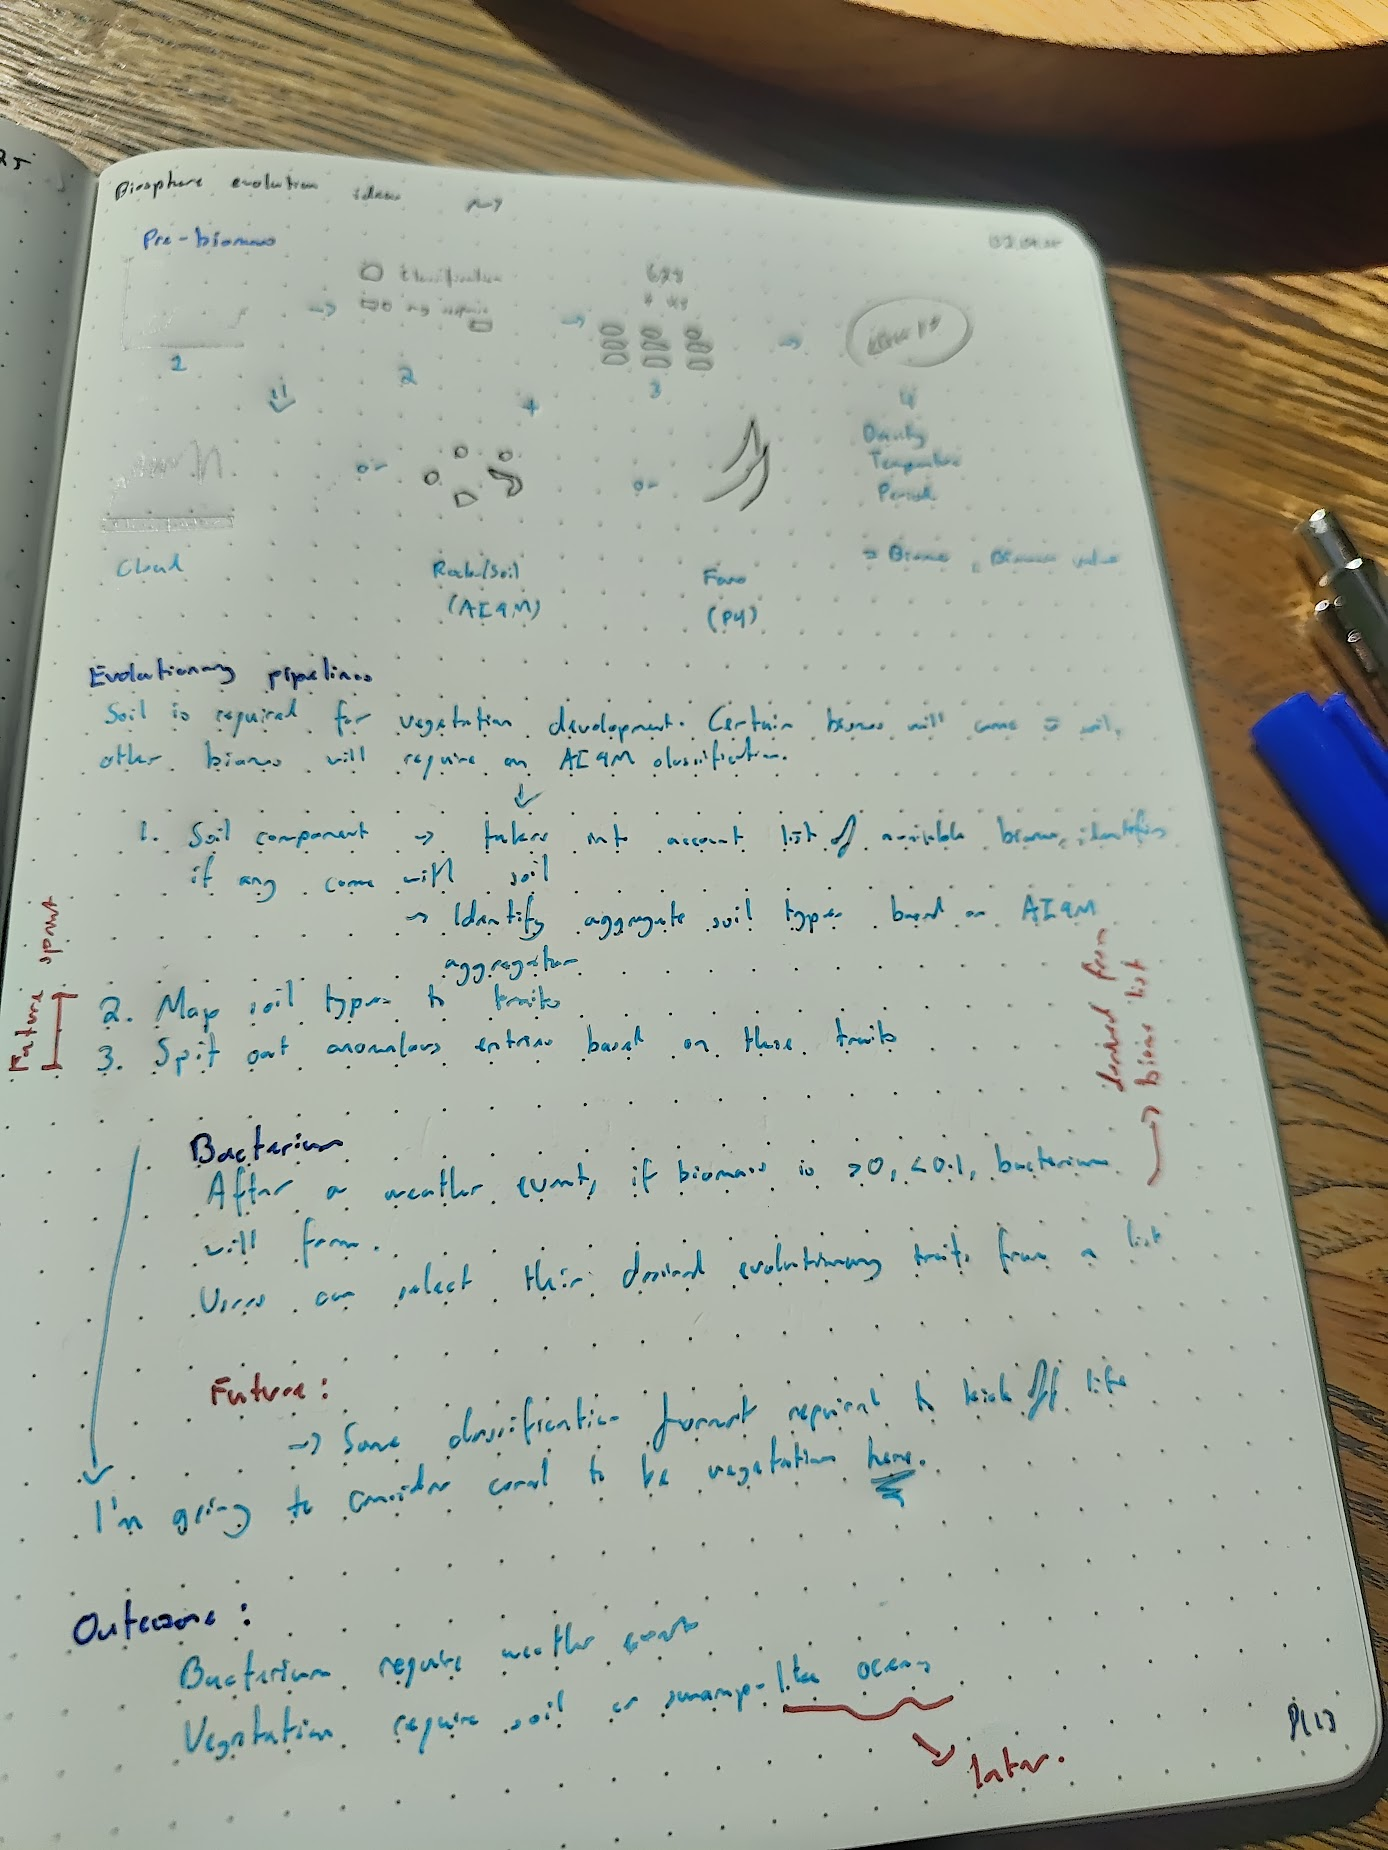 Biosphere evolution ideas
Pre-biomass
classification
1
2
3
4
Density
Temperature
Periods
or
or
Cloud
Rock/Soil
(AI9M)
(P4)
= Biomes, Biomass value
Evolutionary pipelines
Soil is required for vegetation development. Certain biomes will come = soil,
other biomes will require an AI9M classification.
1. Soil component → takes into account list of available biomes, identifies
if any come with soil
→ Identify aggregate soil types based on AI9M
aggregation
2. Map soil types to traits
3. Spit out anomalous entries based on these traits
Feature sprint
derived from
biome list
Bacterium
After a weather event, if biomass is >0, <0.1, bacterium
will form.
Users can select their desired evolutionary traits from a list
Future:
→ Same classification format required to kick off life
I'm going to consider coral to be vegetation here.
Outcome:
Bacterium require weather events
Vegetation require soil or swamp-like oceans
later.